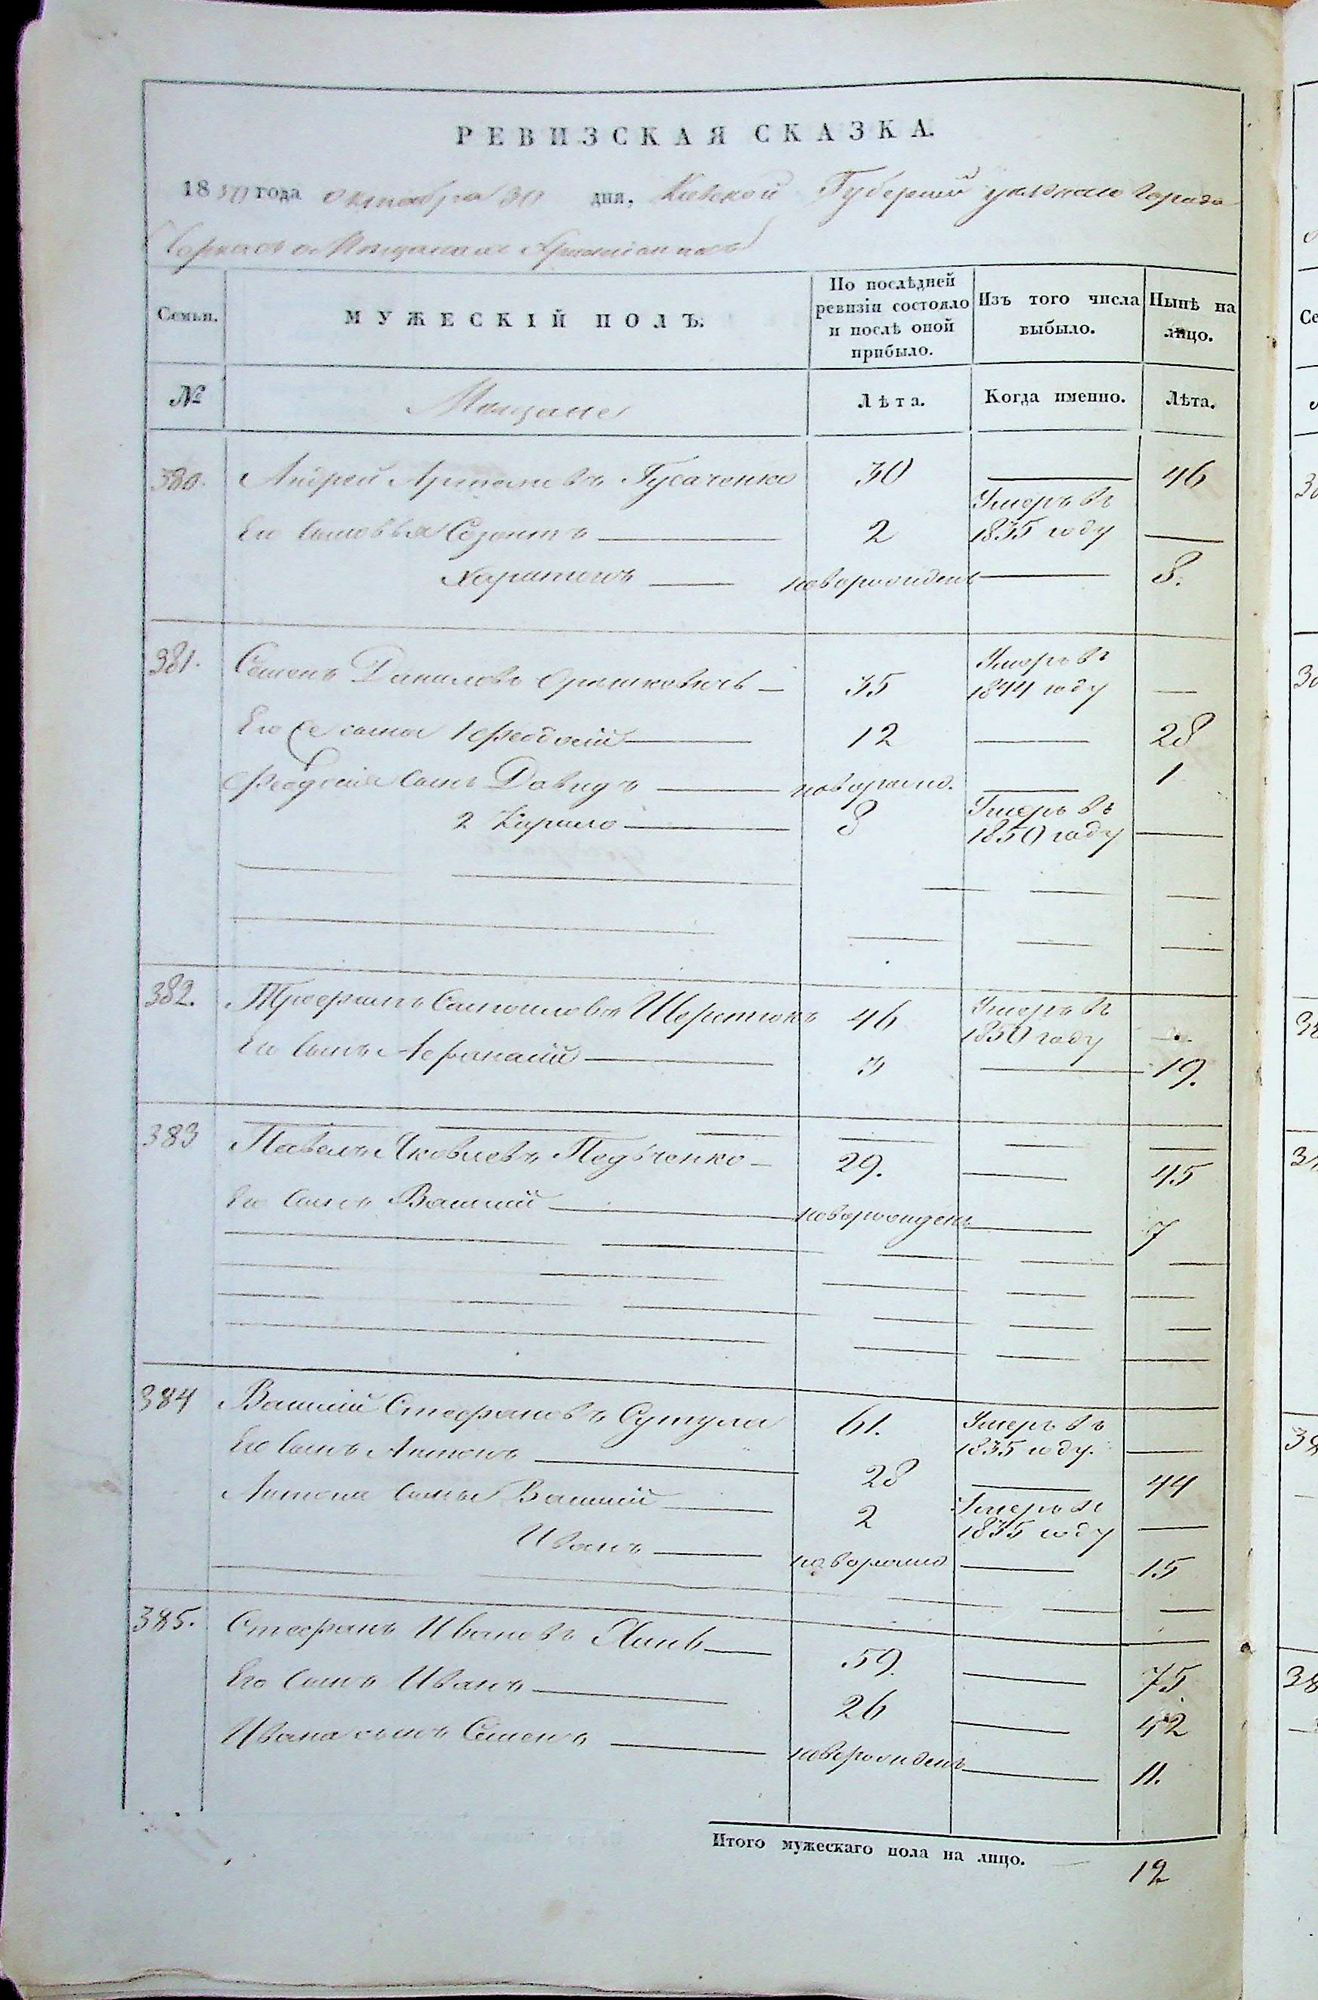 РЕВИЗСКАЯ СКАЗКА.
1850 года октября 30 дня, Кіевской Губерніи уѣзднаго города
Черкасъ о Мещанахъ Христіанахъ
Семьи.
МУЖЕСКІЙ ПОЛЪ.
По послѣдней ревизіи состояло и послѣ оной прибыло.
Изъ того числа выбыло.
Нынѣ на лицо.
№
Мещане
Лѣта.
Когда именно.
Лѣта.
380. Андрей Артемьевъ Гусаченко 30 46
Его сыновья Созонтъ 2 Умеръ въ 1835 году
Харитонъ новорожденъ 8.
381. Семенъ Даниловъ 35 Умеръ въ 1844 году
Его Семена 1 Феодосій 12 28
Феодосія сынъ Давидъ новорожд. 1
2 Кирило 8 Умеръ въ 1850 году
382. Трофимъ Самойловъ Шерстюкъ 46 Умеръ въ 1850 году
Его сынъ Афанасій 3 19.
383 Павелъ Яковлевъ Педѣченко 29. 45
Его сынъ Василій новорожденъ 7
384 Василій Стефановъ Сутула 61. Умеръ въ 1835 году.
Его сынъ Антонъ 28 44
Антона сыны Василій 2 Умеръ въ 1835 году
Иванъ новорожд 15
385. Стефанъ Ивановъ 59. 75
Его сынъ Иванъ 26 42
Ивана сынъ Семенъ новорожденъ 11.
Итого мужескаго пола на лицо. 12